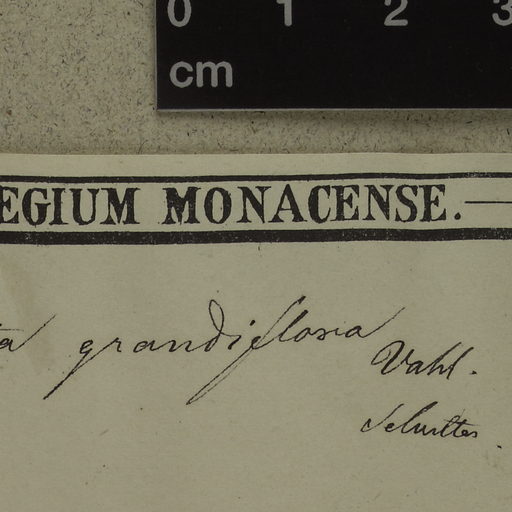 0 1 2 3
cm
EGIUM MONACENSE.
a grandiflora
Vahl.
Schultes.